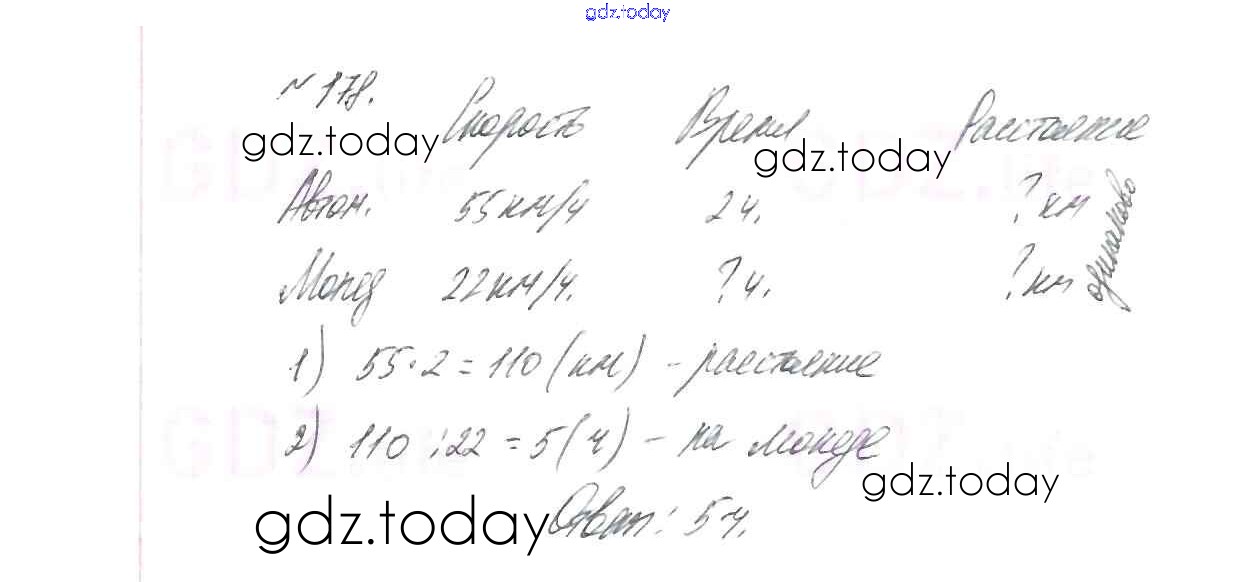 gdz.today
№178.
Скорость Время Расстояние
gdz.today gdz.today
Автом. 55 км/ч 2 ч. ? км
Мопед 22 км/ч. ? ч. ? км
одинаково
1) 55·2=110 (км) - расстояние
2) 110:22=5 (ч) - на мопеде
gdz.today
gdz.today
Ответ: 5 ч.